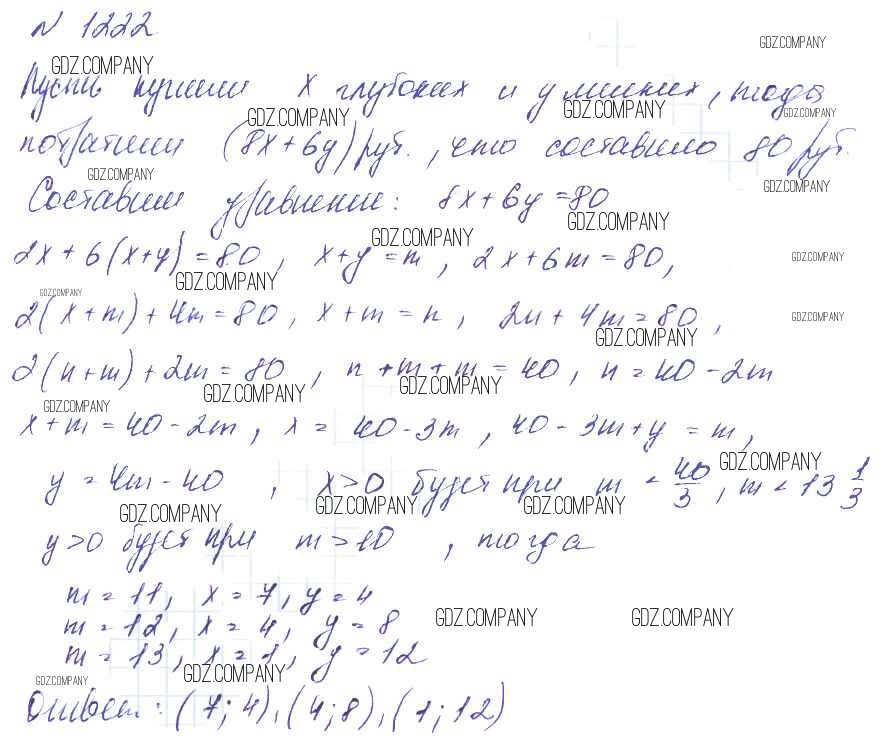 N 1222
GDZ.COMPANY
GDZ.COMPANY
Пусть купили x глубоких и y мелких, тогда
GDZ.COMPANY GDZ.COMPANY GDZ.COMPANY
потратили (8x+6y) руб., что составило 80 руб.
GDZ.COMPANY GDZ.COMPANY
Составим уравнение: 8x+6y=80
GDZ.COMPANY GDZ.COMPANY
2x+6(x+y)=80, x+y=m, 2x+6m=80,
GDZ.COMPANY GDZ.COMPANY
GDZ.COMPANY
2(x+m)+4m=80, x+m=n, 2n+4m=80,
GDZ.COMPANY
GDZ.COMPANY
2(n+m)+2m=80, n+m+m=40, n=40-2m
GDZ.COMPANY GDZ.COMPANY
GDZ.COMPANY
x+m=40-2m, x=40-3m, 40-3m+y=m,
GDZ.COMPANY
y=4m-40, x>0 будет при m<40/3, m<13 1/3
GDZ.COMPANY GDZ.COMPANY GDZ.COMPANY
y>0 будет при m>10, тогда
m=11, x=7, y=4
GDZ.COMPANY GDZ.COMPANY
m=12, x=4, y=8
m=13, x=1, y=12
GDZ.COMPANY GDZ.COMPANY
Ответ: (7;4), (4;8), (1;12)